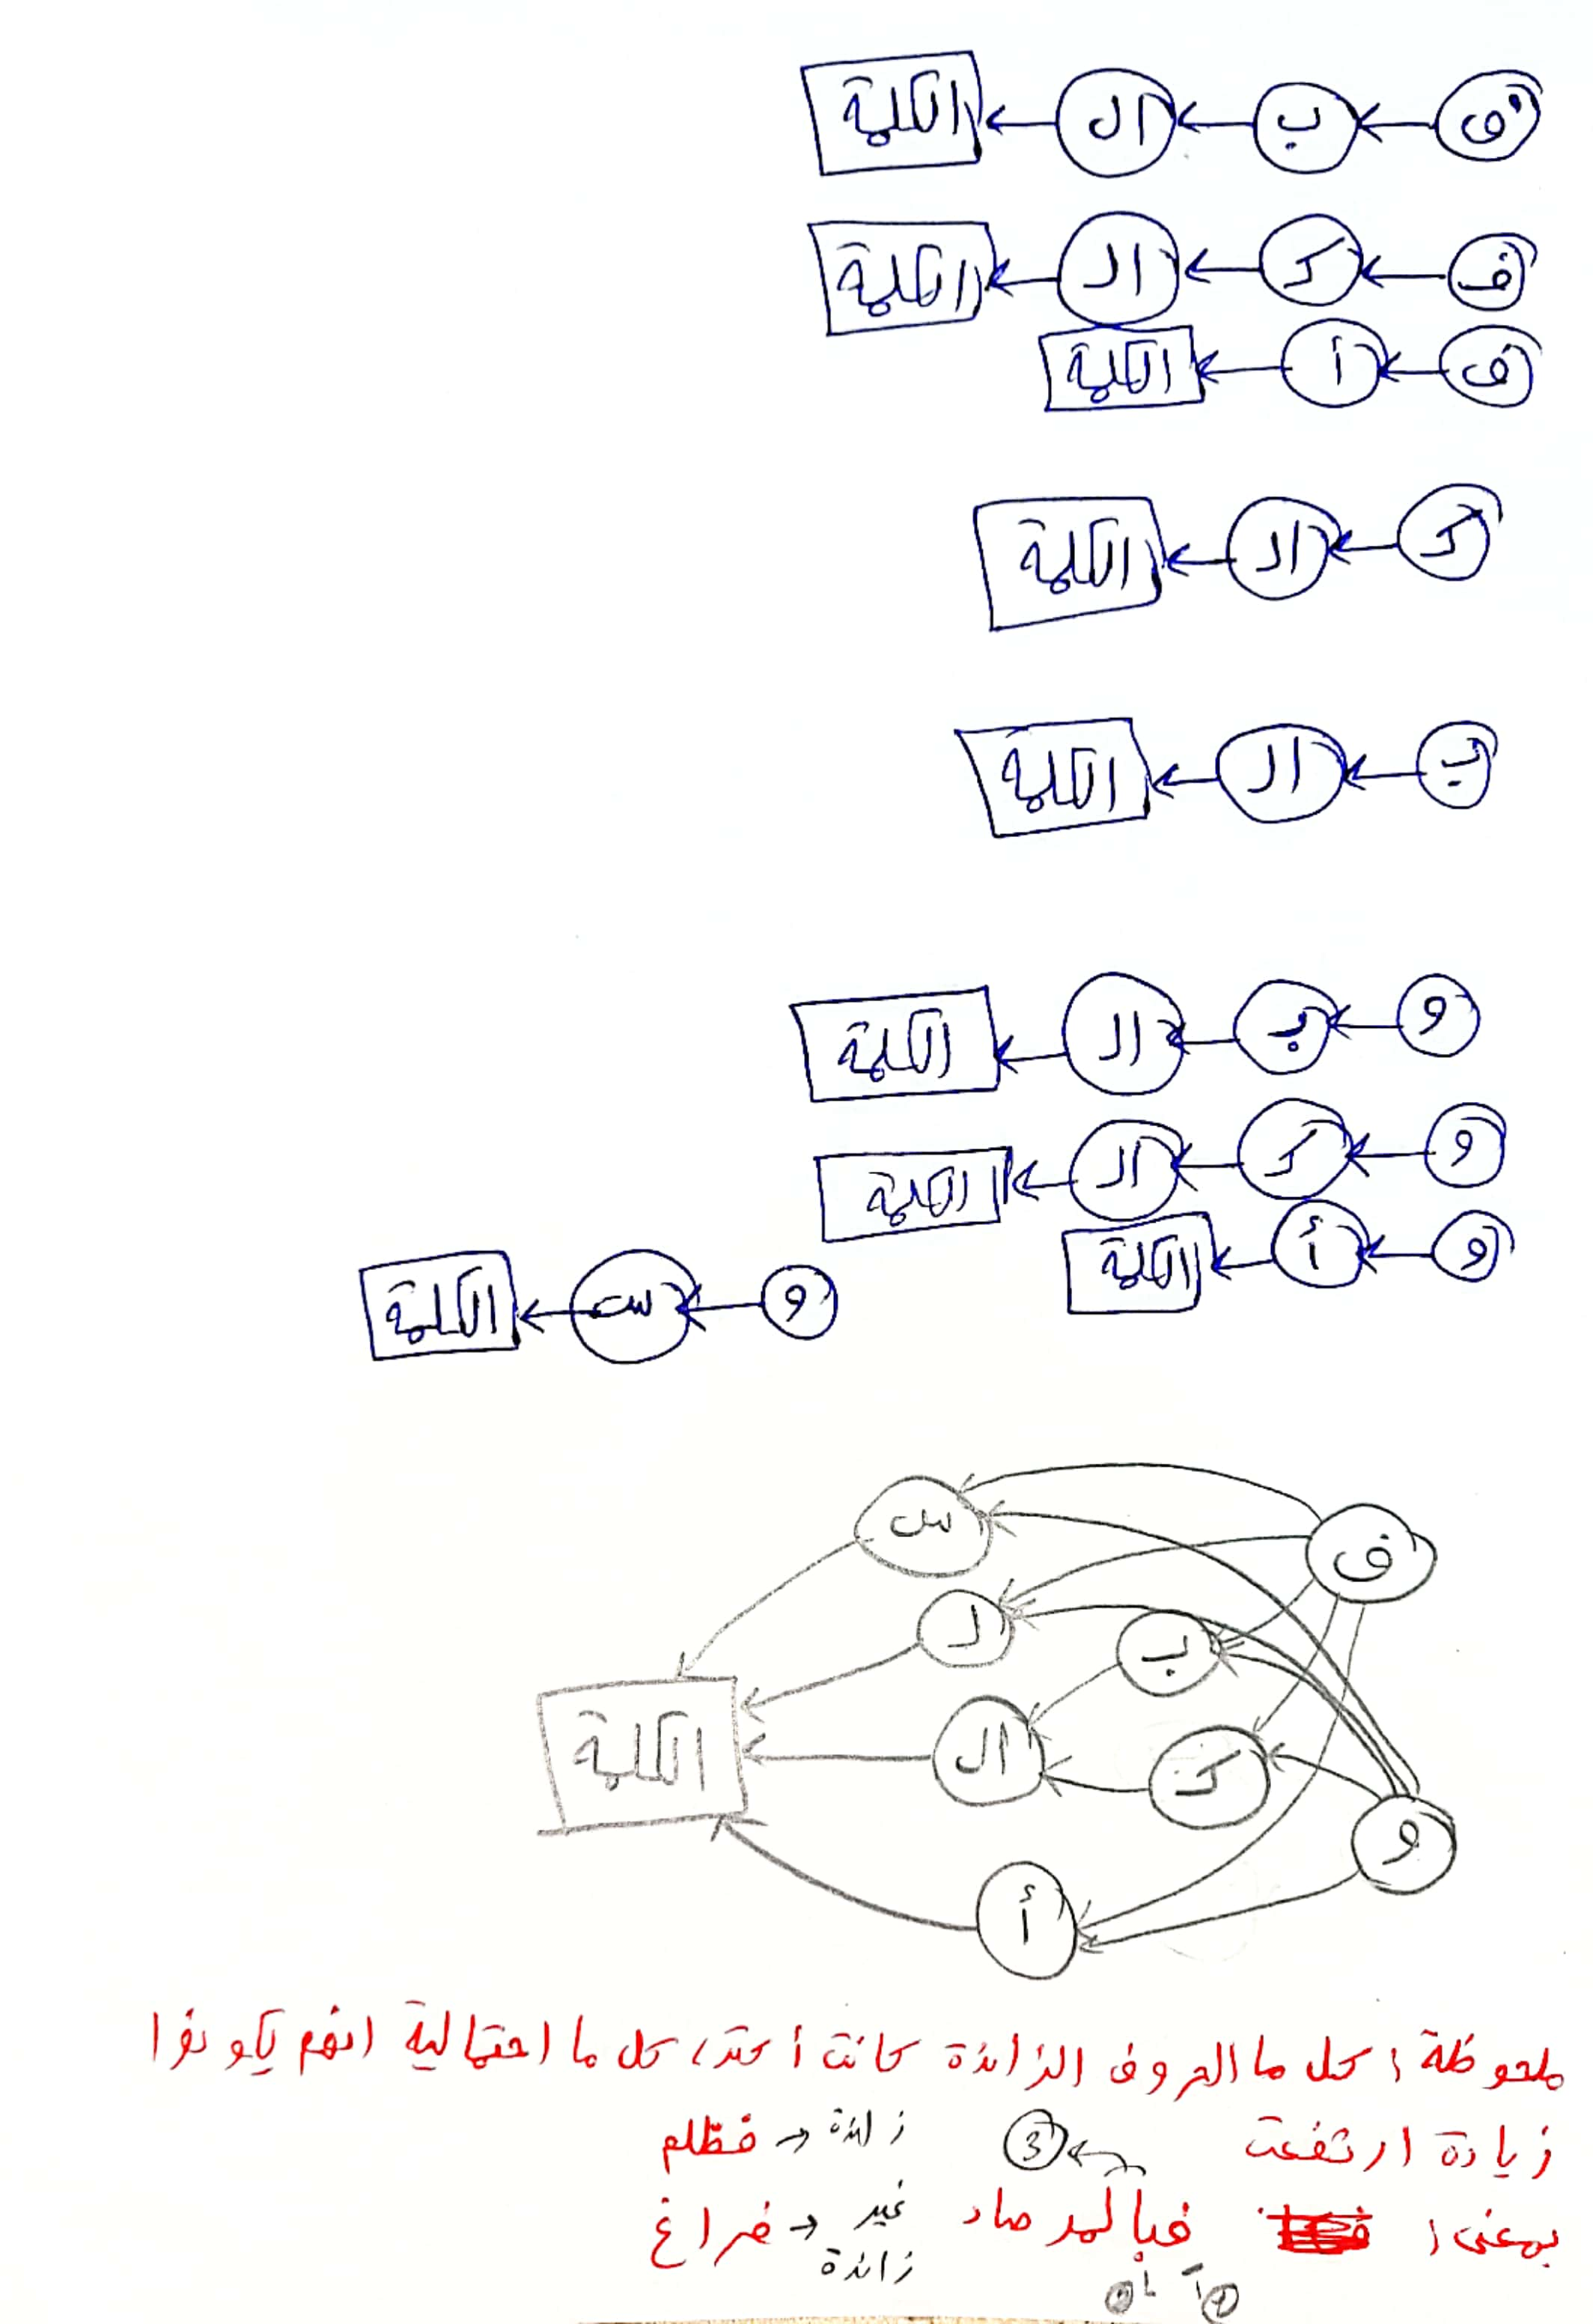 ف ب ال الكلمة
ف ك ال الكلمة
ف أ الكلمة
ك ال الكلمة
ب ال الكلمة
و ب ال الكلمة
و ك ال الكلمة
و أ الكلمة
و س الكلمة
ف س
ل ب
الكلمة ال ك
و
أ
ملحوظة: كل ما الحروف الزائدة كانت أكتر، كل ما احتمالية انهم يكونوا
زيادة ارتفعت 3 زائدة فظلم
بمعنى: فبالمرصاد غير زائدة فراغ